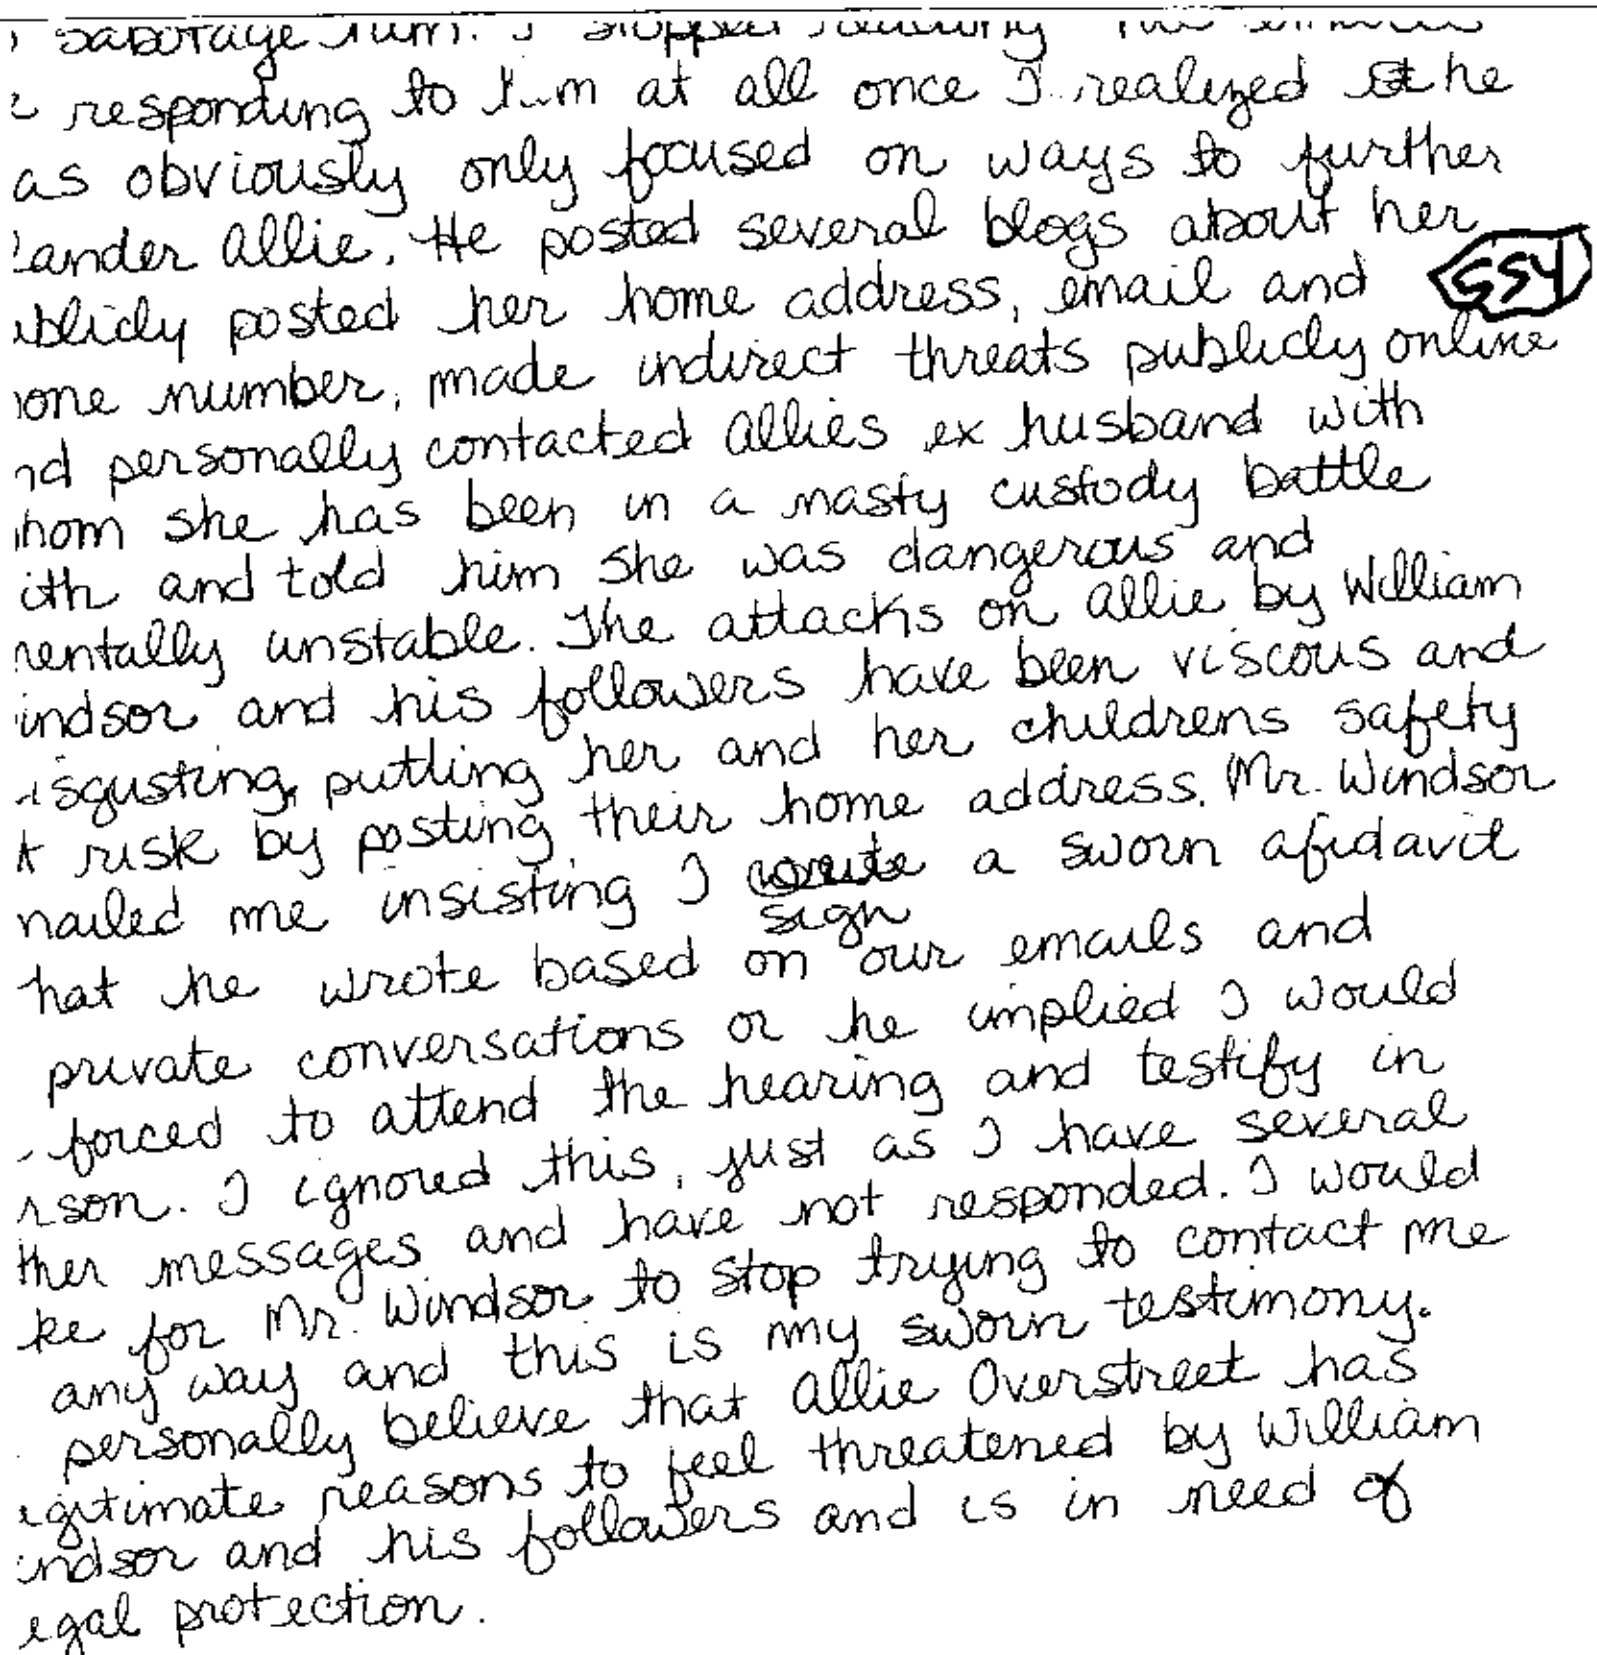 sabotage him. I stopped
responding to him at all once I realized he
as obviously only focused on ways to further
lander Allie. He posted several blogs about her
SSY
ublicly posted her home address, email and
one number, made indirect threats publicly online
nd personally contacted Allies ex husband with
hom she has been in a nasty custody battle
ith and told him she was dangerous and
mentally unstable. The attacks on Allie by William
indsor and his followers have been viscous and
isgusting, putting her and her childrens safety
t risk by posting their home address. Mr. Windsor
mailed me insisting I write a sworn afidavit
sign
hat he wrote based on our emails and
private conversations or he implied I would
forced to attend the hearing and testify in
rson. I ignored this, just as I have several
ther messages and have not responded. I would
ke for Mr. Windsor to stop trying to contact me
any way and this is my sworn testimony.
personally believe that Allie Overstreet has
egitimate reasons to feel threatened by William
indsor and his followers and is in need of
egal protection.